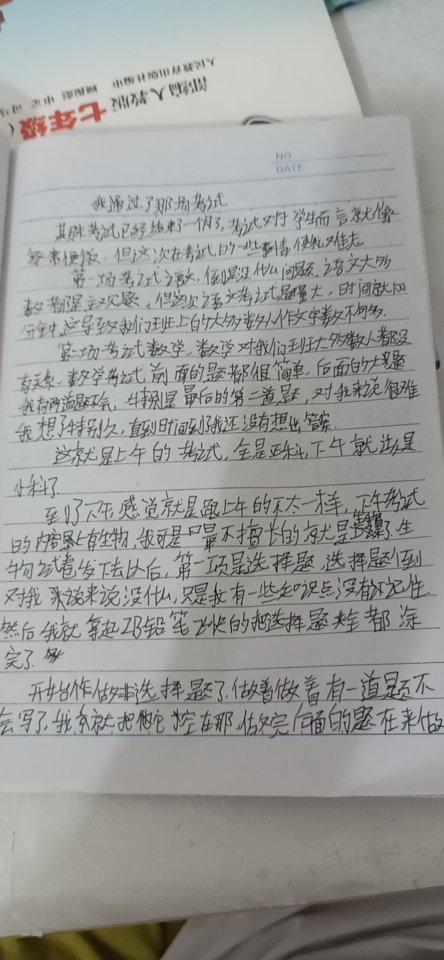 部编人教版 七年级(
人民教育出版社编审
NO
DATE
我通过了那场考试
其期考试已经结束了一个月了,考试对于学生而言就像
家常便饭,但这次在考试的一些事情使我难忘
第一场考试语文,倒是没什么问题,语文大多
数都是主观题,但这次语文考试题量大,时间就100
分钟,这导致我们班上的大多数人作文字数不够多
第二场考试数学,数学对我们班大多数人都没
有关系,数学考试前面的题都很简单,后面的大题
我有两道题不会,特别是最后的第二道题,对我来说很难
我想了特别久,直到时间到了我还没有想出答案
这就是上午的考试,全是正科,下午就该是
小科了
至了下午感觉就是跟上午的不太一样,下午考试
的内容上有生物,我可是最不擅长的就是生物了,生
物试卷发下去以后,第一项是选择题,选择题倒
对我来说来说没什么,只是有一些知识点没有记住
然后我就拿起2B铅笔飞快的把选择题全都涂
完了
开始作做非选择题了,做着做着有一道题不
会写了,我就把他它空在那,做完后面的题在来做